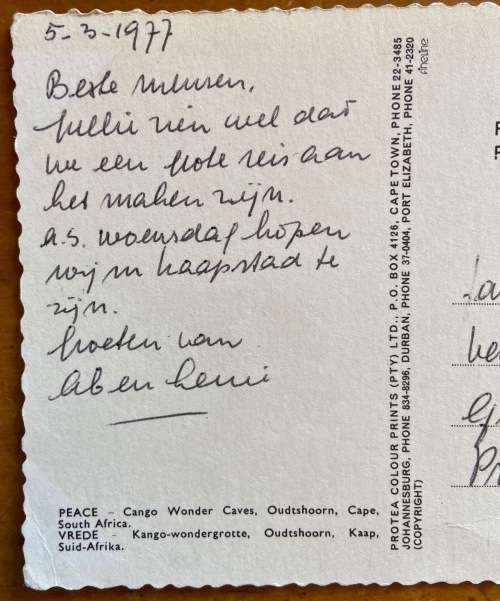 5-3-1977
Beste mensen,
Jullie zien wel dat
we een grote reis aan
het maken zijn.
a.s. woensdag hopen
wij in kaapstad te
zijn.
Groeten van
Ab en
PEACE – Cango Wonder Caves, Oudtshoorn, Cape,
South Africa.
VREDE – Kango-wondergrotte, Oudtshoorn, Kaap,
Suid-Afrika.
PROTEA COLOUR PRINTS (PTY) LTD., P.O. BOX 4126, CAPE TOWN, PHONE 22-3485
JOHANNESBURG, PHONE 834-8296, DURBAN, PHONE 37-0404, PORT ELIZABETH, PHONE 41-2320
(COPYRIGHT)